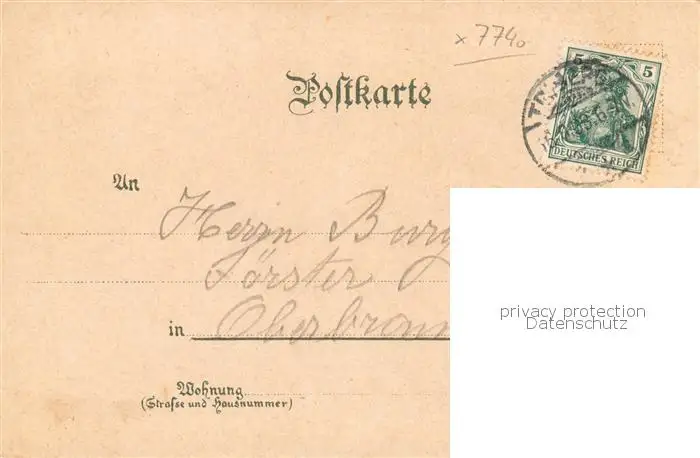 x 7740
5 5
DEUTSCHES REICH
Postkarte
An
Herrn Burg
Förster
in Oberbronn
Wohnung
(Strasse und Hausnummer)
privacy protection
Datenschutz